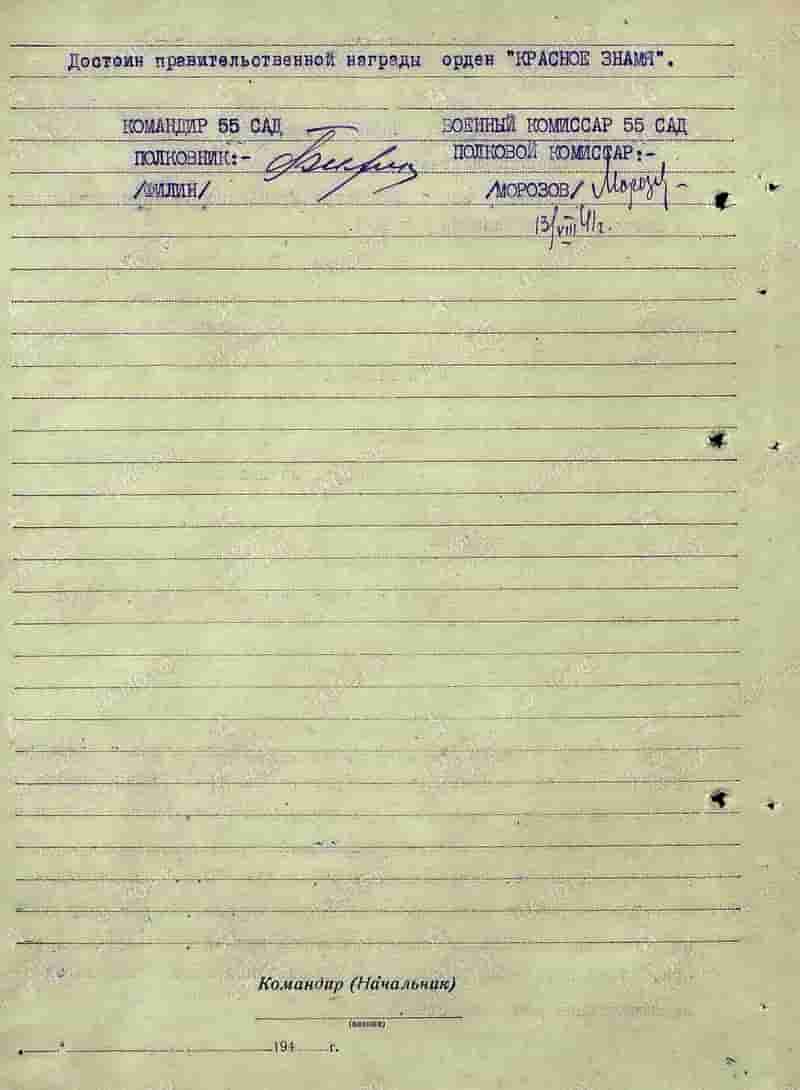 Достоин правительственной награды орден "КРАСНОЕ ЗНАМЯ".
КОМАНДИР 55 САД
ПОЛКОВНИК:-
/ФИЛИН/
ВОЕННЫЙ КОМИССАР 55 САД
ПОЛКОВОЙ КОМИССАР:-
/МОРОЗОВ/ Морозов
13/VIII 41г.
Командир (Начальник)
(звание)
" " 194 г.